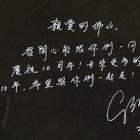 親愛的佛山,
很開心能跟你們一同
慶祝10周年!
10年,希望與你們一起走!